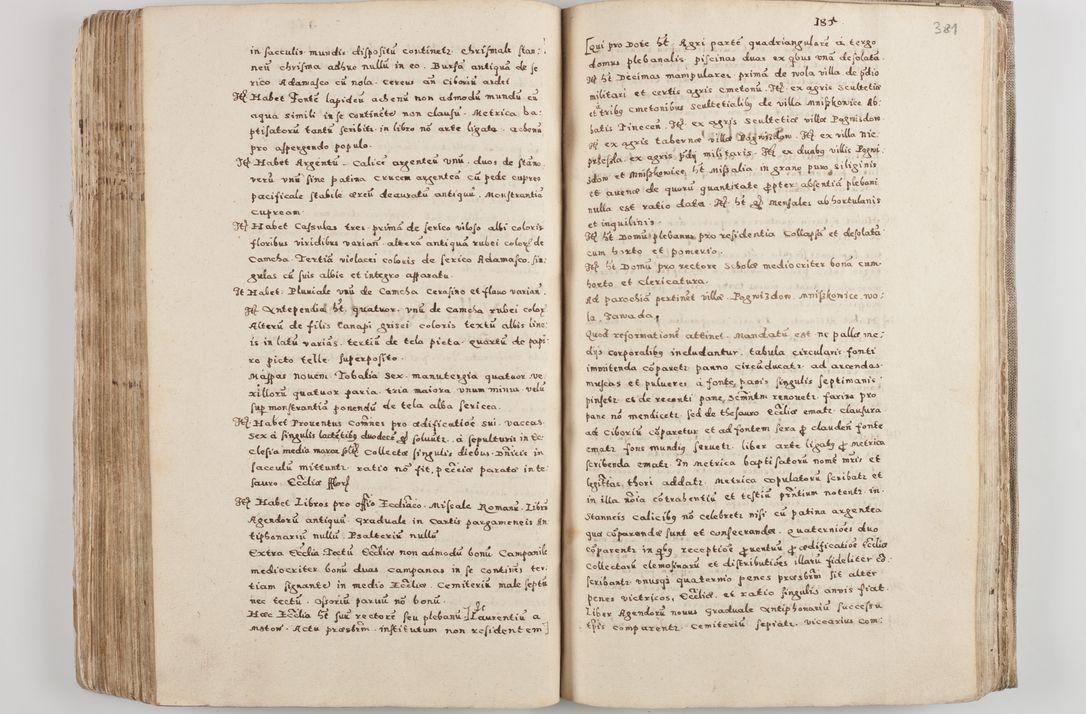 in sacculis mundis dispositū continetꝫ chrismale stan:
neū chrisma adhuc nullū in eo. Bursā antiquā de se
rico Adamasco cū nola. cereus an̄ ciboriū ardet
Itē Habet Fontē lapideū achenū non admodū mundū cū
aqua simili in se continētē non clausū. Metrica ba:
ptisatorū tantū scribitꝫ in libro nō arte ligato. achenū
pro aspergendo populo.
Itē Habet Argentū. Calicē argenteū vnū. duos de stāno.
verū vnū sine patina Crucem argenteā cū pede cupreo
pacificale stabile æreū deauratū antiquū. Monstrantiā
cupream
Itē Habet Casulas tres. primā de serico viloso albi coloris
floribus viridibus variam. alterā antiquā rubei coloris de
Camcha. Tertiā violacei coloris de serico Adamasco. sin:
gulas cū suis albis et integro apparatu.
It Habet. Pluviale vnū de Camcha Cerasino et flavo variatū.
Itē Antependia ht. quatuor. vnū de Camcha rubei colorꝫ
Alterū de filis Canapi grisei coloris textū albis line:
is in latū variās. tertiū de tela picta. quartū de papi:
ro picto telle superposito.
Mappas novem. Tobalia sex. manutergia quatuor ve:
xillorū quatuor paria. tria maiora vnum minus. velū
sup monstrantiā ponendū de tela alba sericea.
Itē Habet Proventus Com̄nes pro ædificatiōe sui. vaccas
sex a singulis duodecē ꝙ soluuntꝫ. a sepulturis in ec:
clesia media marca Collectæ singulis diebus Dn̄icis in
sacculū mittuntꝫ. ratio nō fit, pec̄nia parata in te:
sauro. Ecc̄liæ
Itē Habet Libros pro off̄io Eccl̄iaco. Missale Romanū. Librū
Agendorū antiquū. Graduale in Cartis pargameneis An
tiphonariū nullū. Psalteriū nullū
Extra Eccl̄ia Tectū Eccl̄iæ non admodū bonū Campanile
mediocriter bonū duas campanas in se continēs ter:
tiam signantē in medio Eccl̄iæ. Cemiteriū male septū
nec tectū. Ossoriū parvū nō bonū.
Hæc Eccl̄ia ht suū rectorē seu plebanū Laurentiū a
Mstow. Actu præsbrm̄. institutum non residentem
381
[qui pro Dote ht. Agri partē quadriangularē a tergo
domus plebanalis piscinas duas ex qbus vna desolata.
Itē ht Decimas manipulares primā de nola villa de pdio
militari et certis agris cmetonū. Itē. ex agris scultetiæ
et tribus cmetonibus scultetialibꝫ de villa Mniszkowice Ab:
batis Pinecen̄. Itē. ex agris scultetiæ villæ Pogwisdow.
Itē ex agris tabernæ villæ Pogwisdow. Itē ex villa Nie
przesla. ex agris pdij militaris. Itē ex duabꝫ villis Pogwi:
sdow et Mniszkowice ht Missalia in grano puro siliginis
et avenæ de quorū quantitate ꝓpter absentiā plebani
nulla est ratio data. Itē ht ꝙ mensales ab hortulanis
et inquilinis.
Itē ht Domū plebanū pro residentia Collapsā et desolatā
cum horto et pomerio.
Itē ht Domū pro rectore scholæ mediocriter bonā cum
horto et Clericatura.
Ad parochiā pertinēt villæ. Pogwisdow. Mniszkowice. Wo:
la. Zawada.
Quod reformationē attinet. Mandatū est ne pallæ me:
dijs corporalibꝫ includantur. tabula circularis fonti
immittenda cōparetꝫ panno circūducatꝫ ad arcendas
muscas et pulveres a fonte, panis singulis septimanis
pinsetꝫ et de recenti pane, renovetꝫ farina pro
pane nō mendicetꝫ sed de thesauro Eccl̄iæ ematꝫ clausura
ad Ciboriū cōparetur et ad fontem sera ꝓ claudēn fonte
ematꝫ fons mundus servetꝫ. liber arte ligatꝫ ꝓ metrica
scribenda ematꝫ. In metrica baptisatorū nomē mris et
legittas. thori addatꝫ. Metrica copulatorū scribatꝫ et
in illa nōia cōtrahentiū et testiū prn̄tium notentꝫ. in
Stanneis calicibꝫ nō celebretꝫ nisi cū patina argentea
quæ cōparendæ sunt et consecrandæ. quaterniones duo
cōparentꝫ in qbꝫ receptiōe ꝓventuū ꝓ ædificatiōe Eccl̄iæ
Collectarū elemosinarū et distributiōes illarū fideliter
scribantꝫ vnusqꝫ quaternio penes præsbrm̄ sit alter
penes victricos. Eccl̄iæ. et ratio singulis annis fiat.
Liber Agendorū novus Graduale Antiphonariū successu
tpis comparentꝫ. Cemiteriū sepiatꝫ. vicearius com: